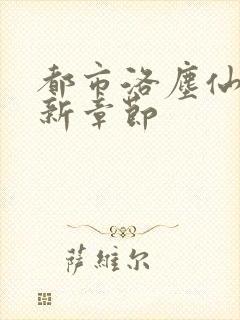 都市洛塵仙
新章節
萨維尔